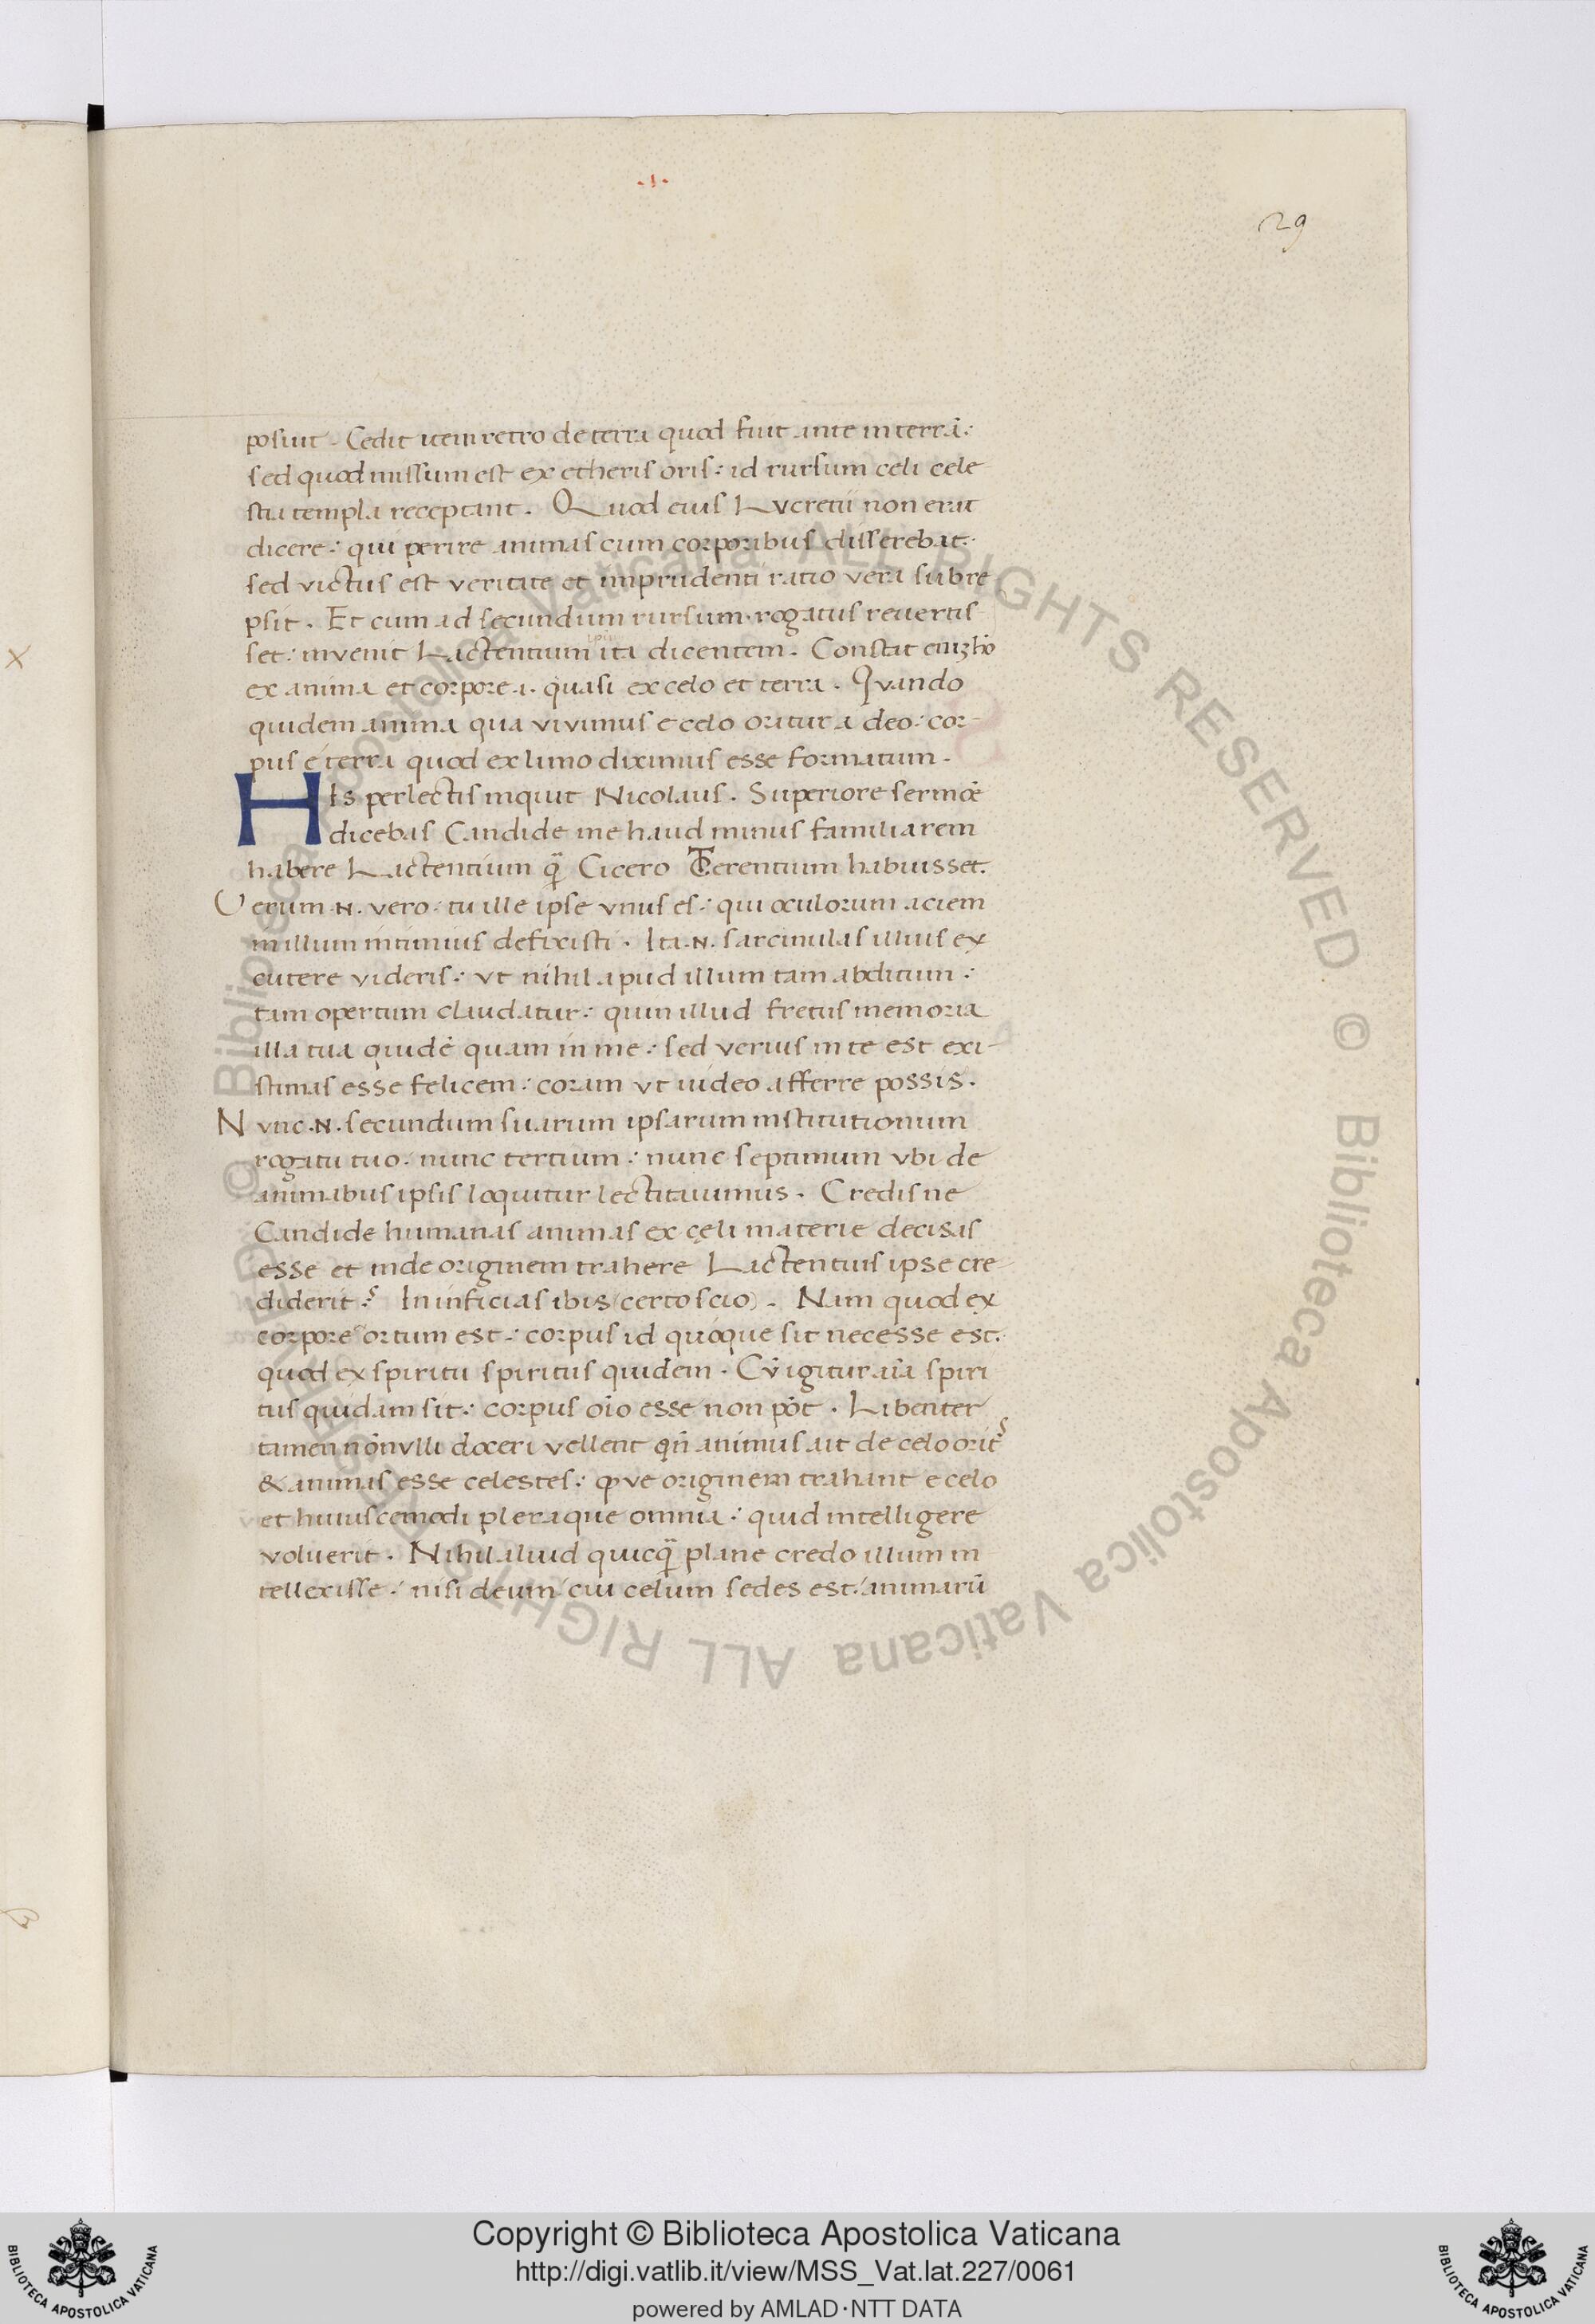 ·I·
29
posuit. Cedit item retro de terra quod fuit ante in terrā:
sed quod missum est ex etheris oris: id rursum celi cele
stia templa receptant. Quod eius Lvcretii non erat
dicere: qui perire animas cum corporibus disserebat.
sed victus est veritate et imprudenti ratio vera subre
psit. Et cum ad secundum rursum rogatus revertis
set: invenit Lactentium ita dicentem. Constat
ex anima et corpore .i. quasi ex celo et terra. Qvando
quidem anima qua vivimus e celo oritur a deo: cor-
pus e terra quod ex limo diximus esse formatum.
His perlectis inquit Nicolaus. Superiore sermōe
dicebas Candide me haud minus familiarem
habere Lactentium q̄ Cicero Terentium habuisset.
Verum .N. vero: tu ille ipse vnus es: qui oculorum aciem
in illum intimius defixisti. Ita .N. sarcinulas illius ex
cutere videris: vt nihil apud illum tam abditum:
tam opertum claudatur: quin illud fretus memoria
illa tua quidē quam in me: sed verius in te est exi-
stimas esse felicem: coram vt uideo afferre possis.
Nvnc .N. secundum suarum ipsarum institutionum
rogatu tuo: nunc tertium: nunc septimum vbi de
animabus ipsis loquitur lectitauimus. Credis ne
Candide humanas animas ex cęli materie decisas
esse et inde originem trahere Lactentius ipse cre
diderit? In inficias ibis (certo scio). Nam quod ex
corpore ortum est: corpus id quoque sit necesse est.
quod ex spiritu spiritus quidem. Cv̄ igitur aīa spiri
tus quidam sit: corpus oīo esse non pōt. Libenter
tamen nōnvlli doceri vellent qn̄ animus ait de celo orit᷑
& animas esse celestes: qve originem trahant e celo
et huiuscemodi pleraque omnia: quid intelligere
voluerit. Nihil aliud quicq̄ plane credo illum in
tellexisse: nisi deum cui celum sedes est: animarū
Copyright © Biblioteca Apostolica Vaticana
http://digi.vatlib.it/view/MSS_Vat.lat.227/0061
powered by AMLAD·NTT DATA
BIBLIOTECA APOSTOLICA VATICANA
BIBLIOTECA APOSTOLICA VATICANA
© Biblioteca Apostolica Vaticana ALL RIGHTS RESERVED © Biblioteca Apostolica Vaticana ALL RIGHTS RESERVED